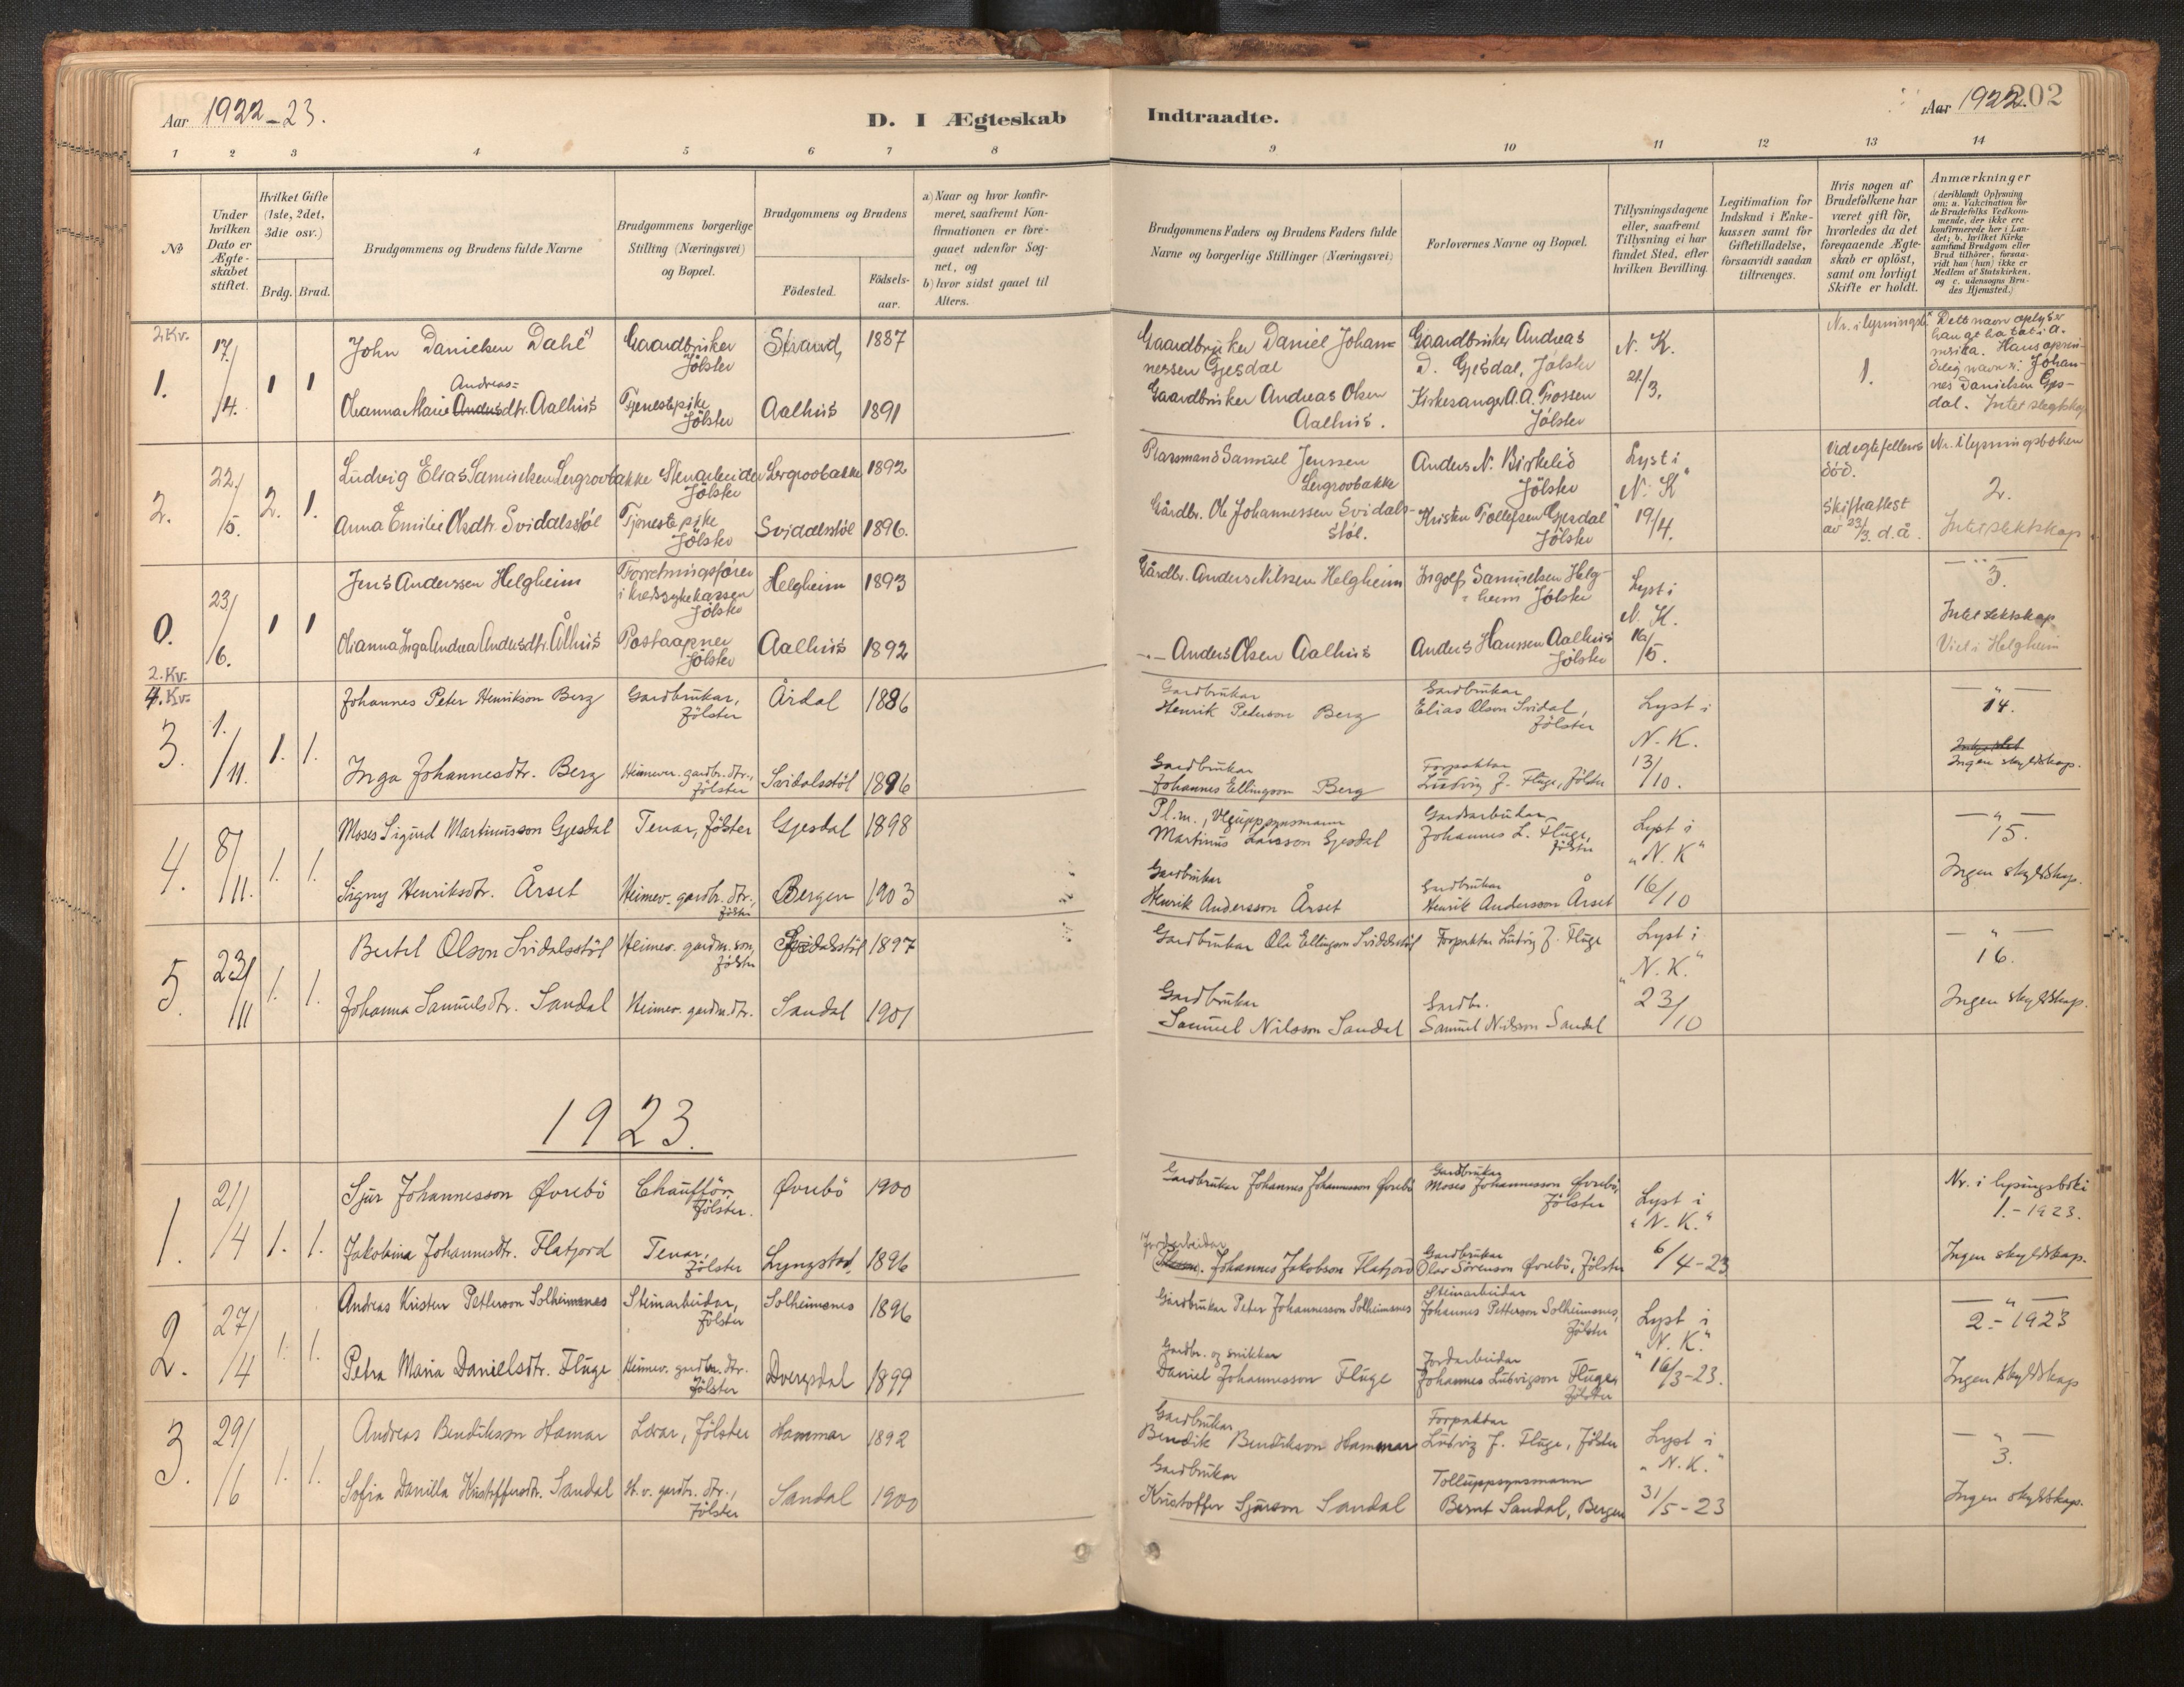 Aar 1922-23.
D. I Ægteskab
Indtraadte.
Aar 1922.
202
1 2 3 4 5 6 7 8 9 10 11 12 13 14
№
Under hvilken Dato er Ægte-skabet stiftet.
Hvilket Gifte (1ste, 2det, 3die osv.)
Brdg. Brud.
Brudgommens og Brudens fulde Navne
Brudgommens borgerlige Stilling (Næringsvei) og Bopæl.
Brudgommens og Brudens
Födested.
Födsels-aar.
a) Naar og hvor konfir-
meret, saafremt Kon-
firmationen er fore-
gaaet udenfor Sog-
net, og
b) hvor sidst gaaet til
Alters.
Brudgommens Faders og Brudens Faders fulde
Navne og borgerlige Stillinger (Næringsvei)
Forlovernes Navne og Bopæl.
Tillysningsdagene
eller, saafremt
Tillysning ei har
fundet Sted, efter
hvilken Bevilling.
Legitimation for
Indskud i Enke-
kassen samt for
Giftetilladelse,
forsaavidt saadan
tiltrænges.
Hvis nogen af
Brudefolkene har
været gift för,
hvorledes da det
foregaaende Ægte-
skab er oplöst,
samt om lovligt
Skifte er holdt.
Anmærkninger
(deriblandt Oplysning
om: a. Vakcination for
de Brudefolks Vedkom-
mende, der ikke ere
konfirmerede her i Lan-
det; b. hvilket Kirke-
samfund Brudgom eller
Brud tilhörer, forsaa-
vidt han (hun) ikke er
Medlem af Statskirken.
og c. udensogns Bru-
des Hjemsted.)
2. Kv.
1. 17/4. 1 1 John Danielsen Dahl Gaardbruker Jölster Strand, 1887
Gaardbruker Daniel Johan-
nessen Gjesdal
Gaardbruker Andreas
D. Gjesdal, Jölster
N. K.
21/3.
Nr. i lysningsb.
1.
Dette navn oplyser
han at ha tat i A-
merika. Hans oprin-
delig navn er Johan-
nes Danielsen Gjes-
dal. Intet slegtskap
Andreas-
Olianna Marie Andersdtr. Aalhus Tjenestepike Jölster Aalhus 1891
Gaardbruker Andreas Olsen
Aalhus.
Kirkesanger A. A. Fossen
Jölster
2. 22./5. 2. 1. Ludvig Elias Samuelsen Lergrovbakke Stenarbeider Jölster Lergrovbakke 1892
Plassmand Samuel Jenssen
Lergrovbakke
Anders N. Birkelid
Jölster
Lyst i
"N. K"
19/4.
Ved egtefellens
död.
Skifteattest
av 23/3. d.å.
Nr. i lysningsboken
2.
Intet slektskap
Anna Emilie Olsdtr. Svidalsstöl Tjenestepike Jölster Svidalsstöl 1896.
Gårdbr. Ole Johannessen Svidals-
stöl.
Kristen Tollefsen Gjesdal
Jölster
0. 23/6. 1 1 Jens Anderssen Helgheim Forretningsförer i kredssykekassen Jölster Helgheim 1893
Gårdbr. Anders Nilssen Helgheim
Ingolf Samuelsen Helg-
heim Jölster
Lyst i
N. K.
16/5.
3.
Intet slektskap
Viet i Helgheim
Olianna Inga Andrea Andersdtr. Ålhus Postaapner Jölster Aalhus 1892
-.- Anders Olsen Aalhus
Anders Hanssen Aalhus
Jölster
2. Kv.
4. Kv.
3. 1./11. 1. 1. Johannes Peter Henrikson Berg Gardbrukar, Jölster Årdal 1886
Gardbrukar
Henrik Pederson Berg
Gardbrukar
Elias Olson Svidal,
Jölster
Lyst i
N. K.
13/10.
— " —
14.
Ingen skyldskap.
Inga Johannesdtr. Berg Heimever. gardbr. dtr., Jölster Svidalsstöl 1896
Gardbrukar
Johannes Ellingson Berg
Forpaktar
Ludvig J. Fluge, Jölster
4. 8/11. 1. 1. Moses Sigurd Martinusson Gjesdal Tenar, Jölster Gjesdal 1898
Pl.m.,
Martinus Larsson Gjesdal
Gardsarbeidar
Johannes L. Fluge,
Jölster
Lyst i
"N. K"
16/10
— " —
15.
Ingen skyldskap.
Signy Henriksdtr. Årset Heimev. gardbr. dtr., Jölster Bergen 1903
Gardbrukar
Henrik Andersson Årset
Gardbrukar
Henrik Andersson Årset
5. 23/11 1. 1. Bertel Olson Svidalsstöl Heimev. gardm. son, Jölster Svidalsstöl 1897
Gardbrukar Ola Ellingson Svidalsstöl
Forpaktar Ludvig J. Fluge
Lyst i
"N. K."
23/10
— " —
16.
Ingen skyldskap.
Johanna Samuelsdtr. Sandal Heimev. gardm. dtr. Sandal 1901
Gardbrukar
Samuel Nilsson Sandal
Gardbr.
Samuel Nilsson Sandal
1923.
1. 21/4 1. 1. Sjur Johannesson Øvrebö Chaufför, Jölster. Øvrebö 1900
Gardbrukar Johannes Johannesson Øvrebö
Gardbrukar
Moses Johannesson Øvrebö,
Jölster
Lyst i
"N. K."
6/4-23
Nr. i lysingsboki
1.- 1923.
Ingen skyldskap.
Jakobina Johannesdtr. Flatjord Tenar, Jölster Lyngstad, 1896
Jordarbeidar
Johannes Jakobson Flatjord
Gardbrukar
Olav Sörenson Øvrebö, Jölster
2. 27/4 1. 1. Andreas Kristen Petterson Solheimsnes Steinarbeidar, Jölster Solheimsnes 1896
Gardbrukar Peter Johannesson Solheimsnes
Steinarbeidar
Johannes Petterson Solheimsnes,
Jölster
Lyst i
"N. K."
16/3-23.
— " —
2.- 1923
Ingen skyldskap
Petra Maria Danielsdtr. Fluge Heimev. gardbr. dtr. Jölster Dvergsdal 1899
Gardbr. og snikkar
Daniel Johannesson Fluge
Jordarbeidar
Johannes Ludvigson Fluge,
Jölster
3. 29/6 1. 1. Andreas Bendikson Hamar Lærar, Jölster Hammar 1892
Gardbrukar
Bendik Bendikson Hammar
Forpaktar
Ludvig J. Fluge, Jölster
Lyst i
"N. K."
31/5-23
— " —
3.
Ingen skyldskap.
Sofia Danilla Kristoffersdtr. Sandal H. v. gardbr. dtr., Jölster Sandal 1900
Gardbrukar
Kristoffer Sjurson Sandal
Tolluppsynsmann
Bernt Sandal, Bergen